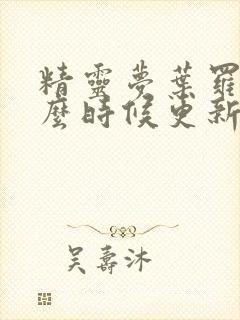 精靈夢葉羅
麼時候更新
吳壽沐